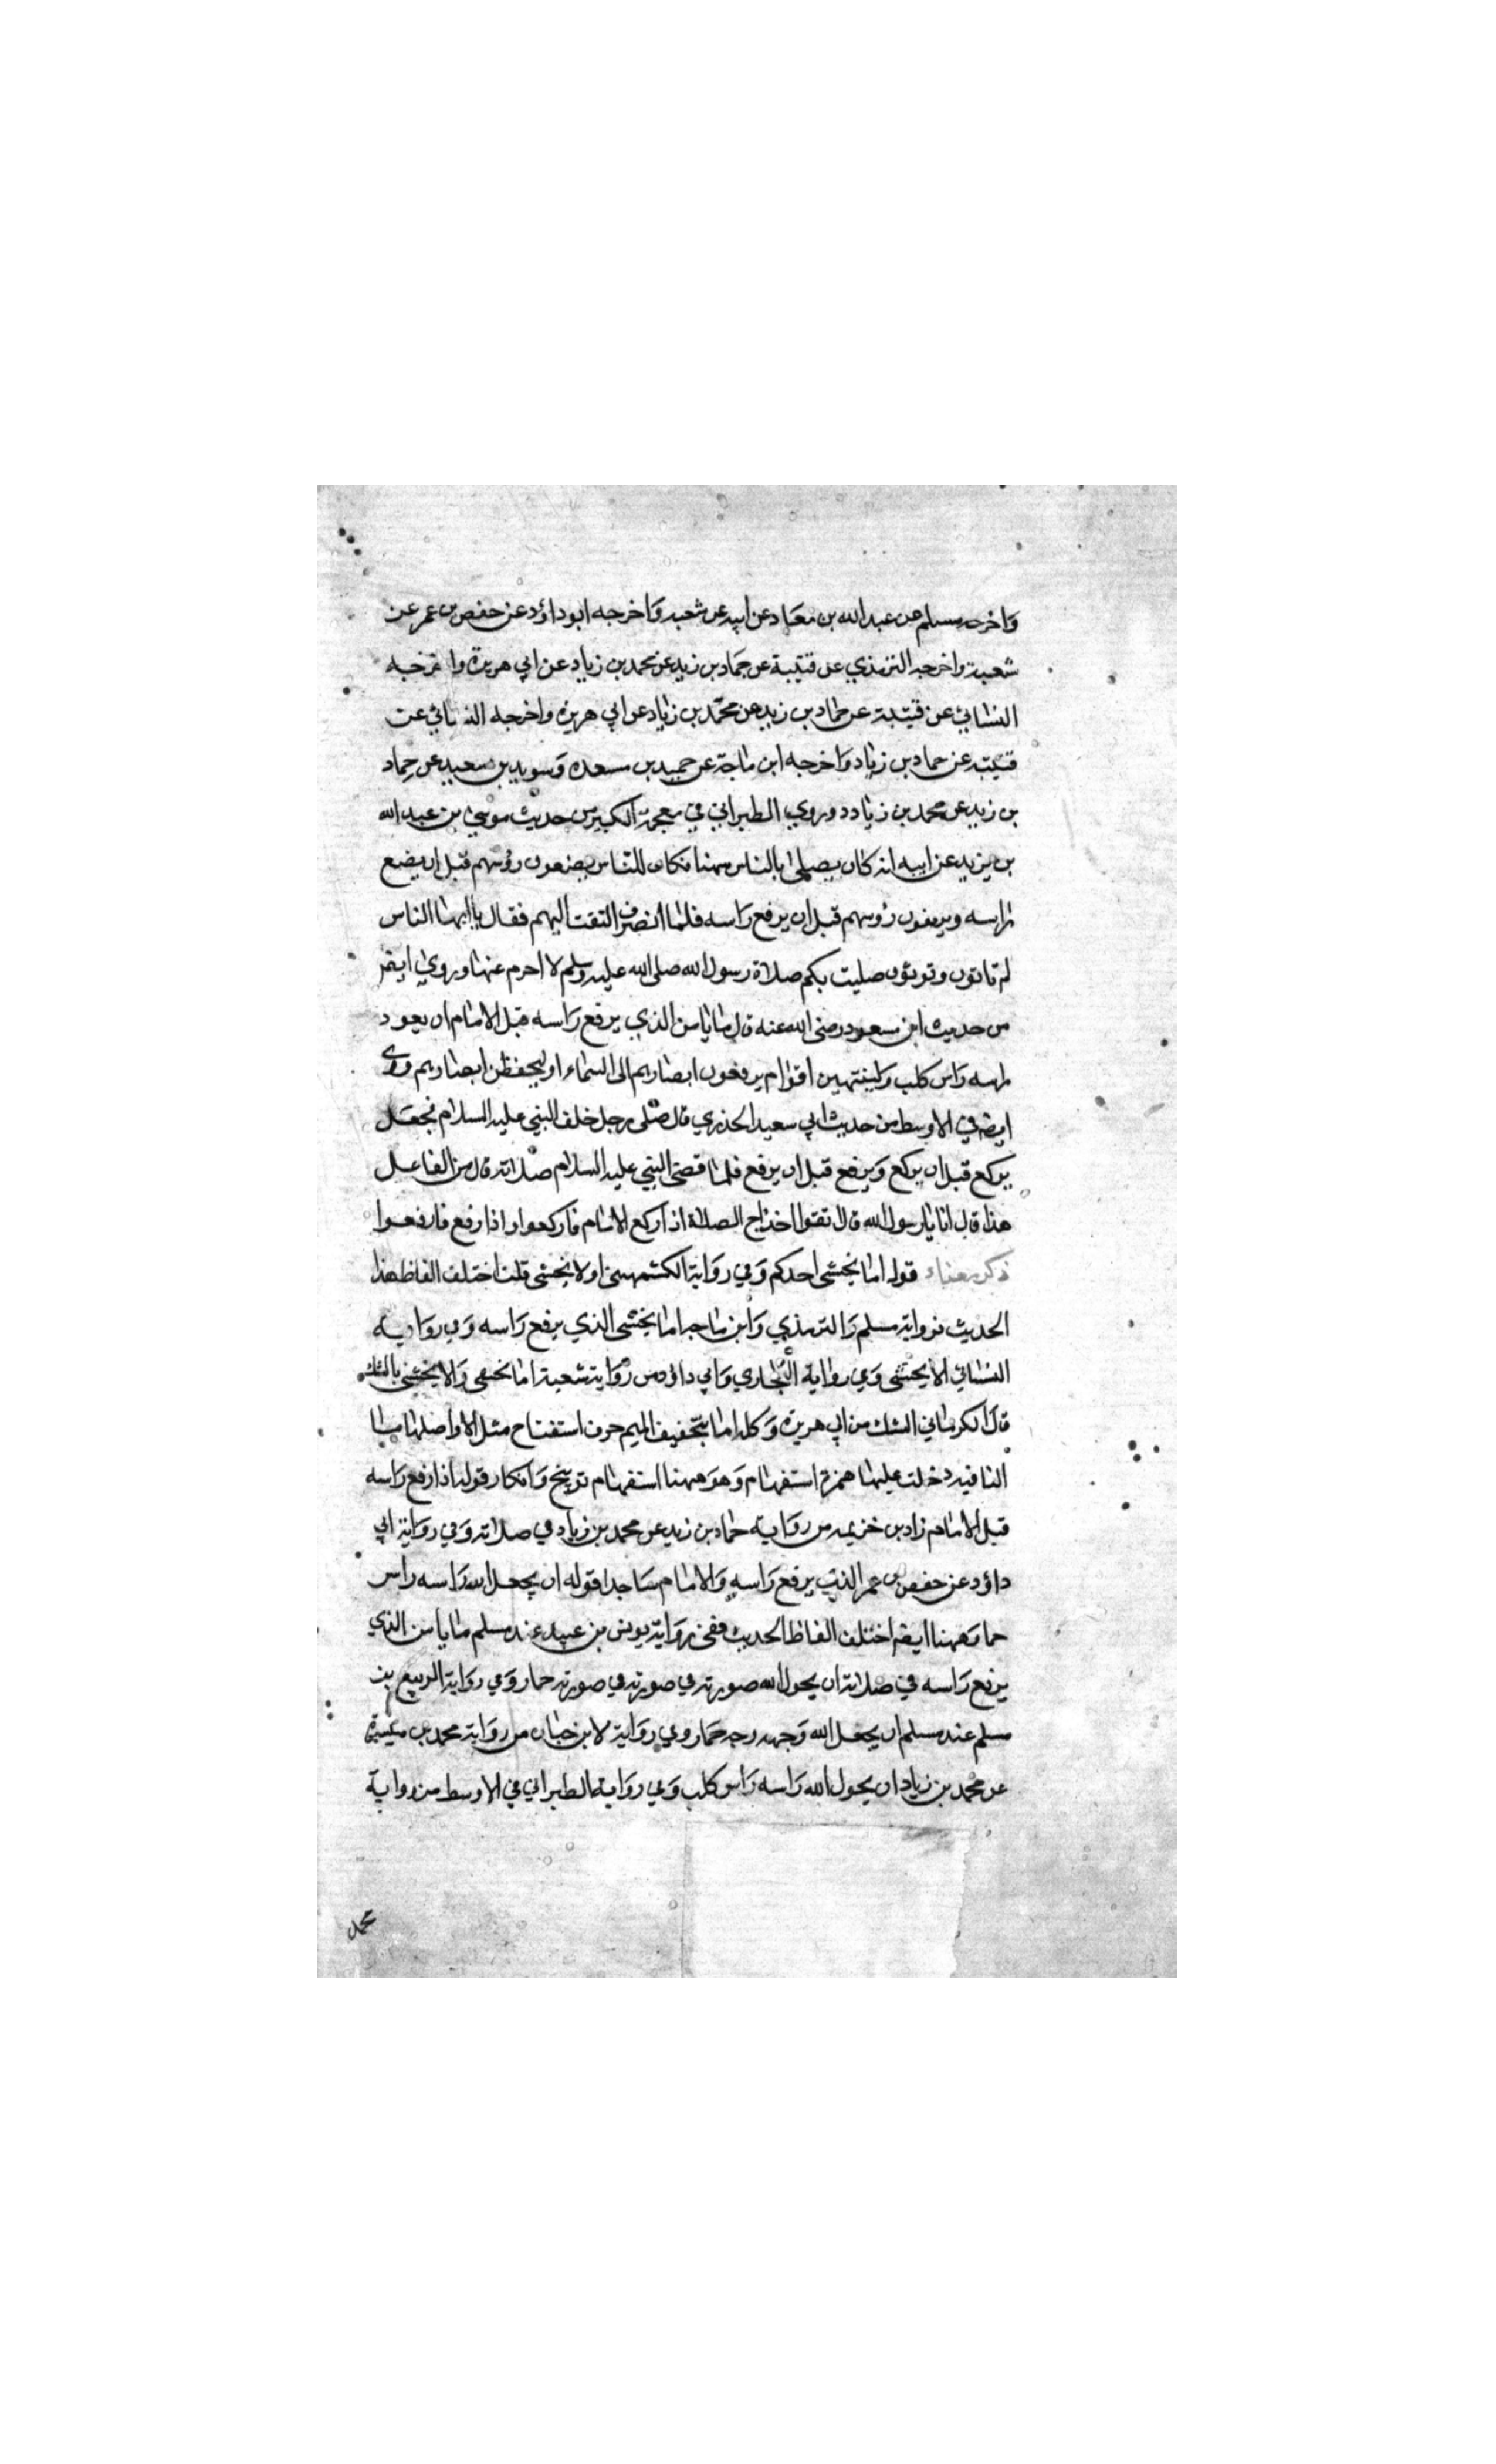 واخرجه مسلم عن عبد الله بن معاد عن ابيه عن شعبه واخرجه ابو داؤد عن حفص بن عمر عن
شعبة واخرجه الترمذي عن قتيبة عن حماد بن زيد عن محمد بن زياد عن ابي هريرة واخرجه
النسائي عن قتيبة عن حماد بن زيد عن محمد بن زياد عن ابي هريرة واخرجه النسائي عن
قتيبه عن حماد بن زياد واخرجه ابن ماجة عن حميد بن مسعده وسويد بن سعيد عن حماد
بن زيد عن محمد بن زياد وروي الطبراني في معجمة الكبير من حديث موسي بن عبد الله
بن يزيد عن ابيه انه كان يصلي بالناس ههنا فكان للناس يضعون رؤسهم قبل ان يضع
راسه ويرفعون رؤسهم قبل ان يرفع راسه فلما انصرف التفت اليهم فقال يا ايها الناس
لم تاتون وتوتؤن صليت بكم صلاة رسول الله صلى الله عليه وسلم لا احرم عنها وروي ايضا
من حديث ابن مسعود رضى الله عنه قال ما يامن الذي يرفع راسه قبل الامام ان يعود
راسه راس كلب ولينتهين اقوام يرفعون ابصارهم الى السماء او ليحفظن ابصارهم وروى
ايضا في الاوسط من حديث ابي سعيد الخذري قال صلى رجل خلف النبي عليه السلام فجعل
يركع قبل ان يركع ويرفع قبل ان يرفع فلما قضى النبي عليه السلام صلاته قال من الفاعل
هذا قال انا يا رسول الله قال تقوا اخذاج الصلاة اذا ركع الامام فاركعوا واذا رفع فارفعوا
ذكر معناه قوله اما يخشى احدكم وفي رواية الكشمهيني اولا يخشى قلت اختلف الفاظ هذا
الحديث فرواية مسلم والترمذي وابن ماجه اما يخشى الذي يرفع راسه وفي رواية
النسائي الا يخشى وفي رواية البخاري وابي داؤد من رواية شعبة اما يخشى والا يخشى بالشك
قال الكرماني الشك من ابي هريرة وكله اما بتخفيف الميم حرف استفتاح مثل الا واصلها ما
النافيه دخلت عليها همزة استفهام وهو ههنا استفهام توبيخ وانكار قوله اذا رفع راسه
قبل الامام زاد بن خزيمه من رواية حماد بن زيد عن محمد بن زياد في صلاته وفي رواية ابي
داؤد عن حفص بن عمر الذي يرفع راسه والامام ساجدا قوله ان يجعل الله راسه راس
حما وههنا ايضا اختلف الفاظ الحديث ففي رواية يونس بن عبيد عند مسلم ما يامن الذي
يرفع راسه في صلاته ان يحول الله صورته في صورته في صورته حمار وفي رواية الربيع بن
مسلم عند مسلم ان يجعل الله وجهه وجه حمار وفي رواية لابن حبان من رواية محمد بن ميسرة
عن محمد بن زياد ان يحول الله راسه راس كلب وفي رواية الطبراني في الاوسط من رواية
محمد